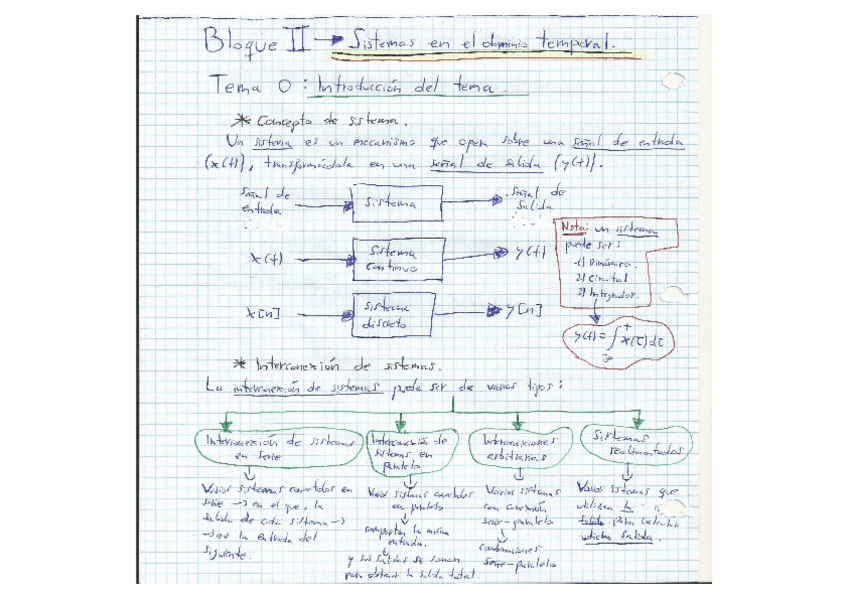 Bloque II → Sistemas en el dominio temporal.
Tema 0: Introducción del tema.
* Concepto de sistema.
Un sistema es un mecanismo que opera sobre una señal de entrada
(x(t)), transformándola en una señal de salida (y(t)).
Señal de entrada → sistema → señal de salida
x(t) → sistema continuo → y(t)
x[n] → sistema discreto → y[n]
Nota: un sistema
puede ser:
1) Dinámico.
2) Circuital
3) Integrador.
y(t) = ∫ x(τ)dτ
* Interconexión de sistemas.
La interconexión de sistemas puede ser de varios tipos:
Interconexión de sistemas
en serie
Varios sistemas conectados en
serie → en el que, la
salida de cada sistema →
→ es la entrada del
siguiente.
Interconexión de
sistemas en
paralelo
Varios sistemas conectados
en paralelo
comparten la misma
entrada.
y sus salidas se suman
para obtener la salida total.
Interconexiones
arbitrarias
Varios sistemas
con conexión
serie-paralelo
combinaciones
serie-paralelo
Sistemas
realimentados
Varios sistemas que
utilizan la
salida para calcular
dicha salida.